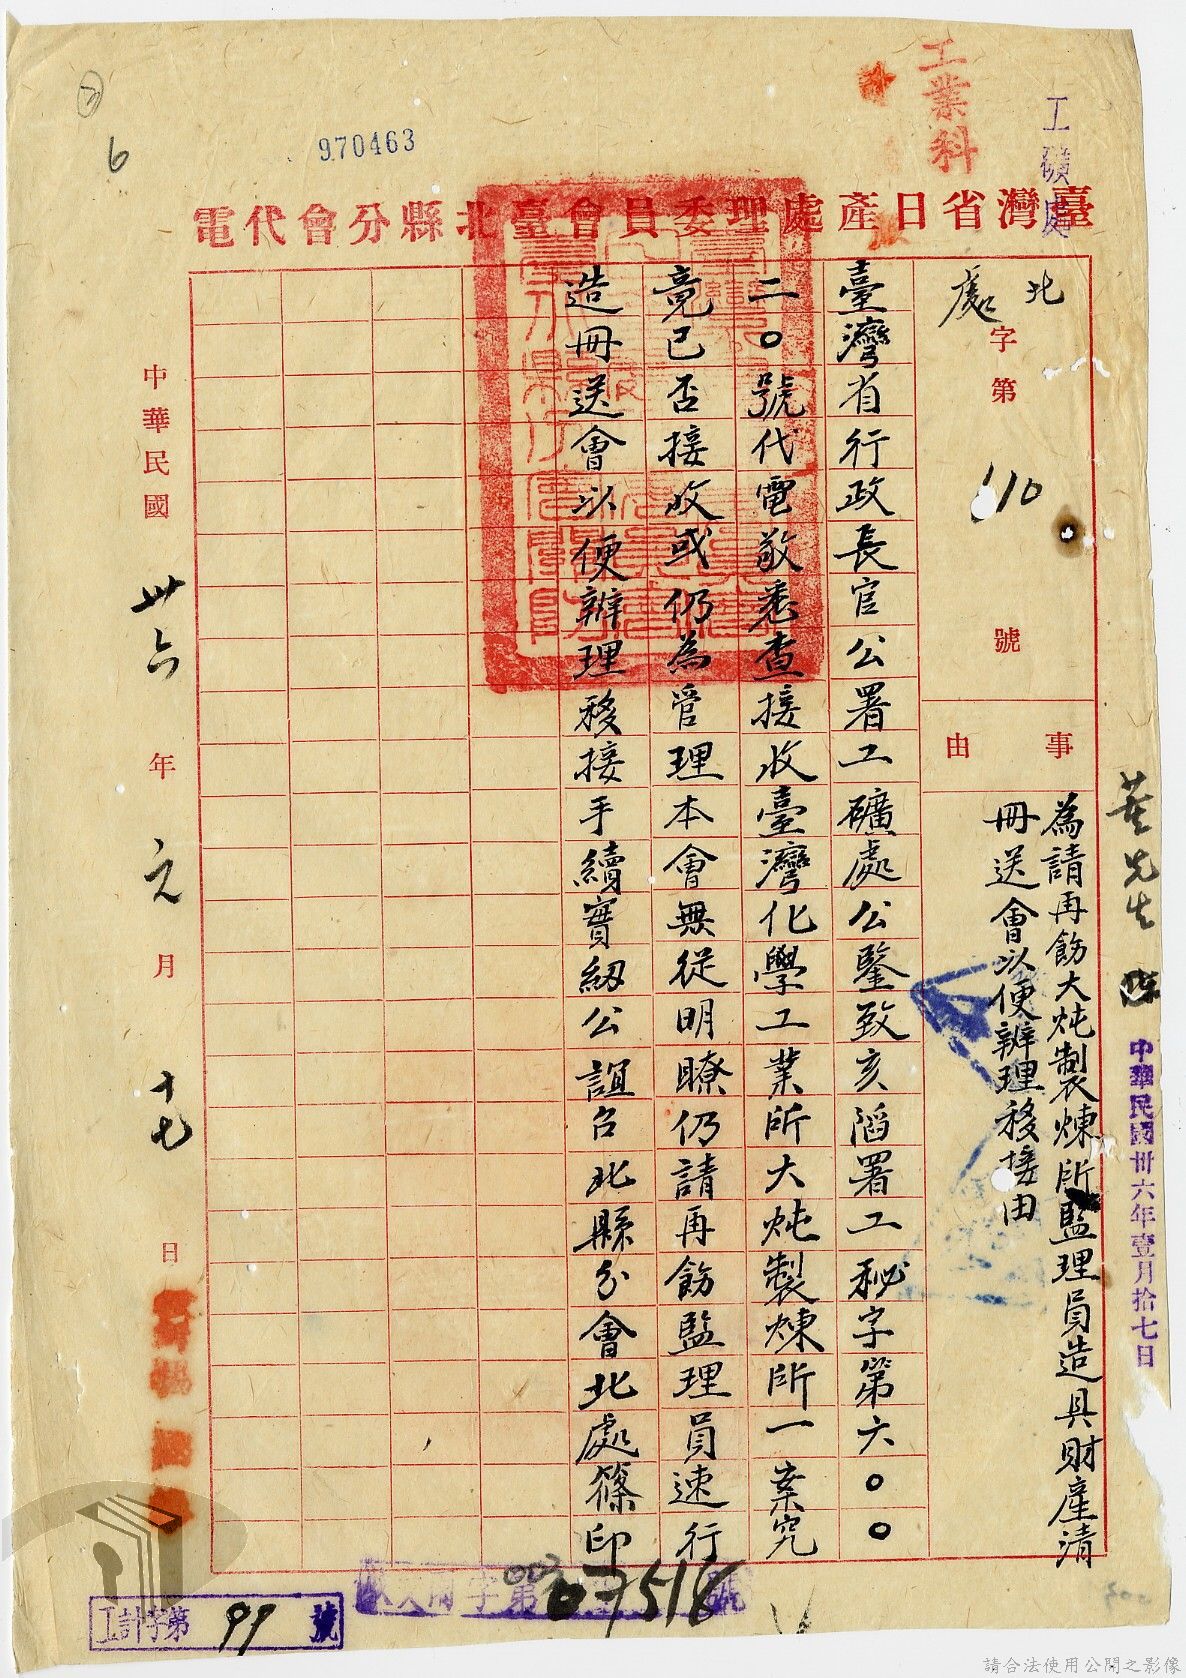 工業科
工礦處
970463
6
臺灣省日產處理委員會臺北縣分會代電
北處字第110號
事由
為請再飭大炖製煉所監理員造具財產清
冊送會以便辦理移接由
臺灣省行政長官公署工礦處公鑒致亥滔署工秘字第六〇〇
二〇號代電敬悉查接收臺灣化學工業所大炖製煉所一案究
竟已否接收或仍為管理本會無從明瞭仍請再飭監理員速行
造冊送會以便辦理移接手續實紉公誼台北縣分會北處篠印
中華民國卅六年元月十七日
中華民國卅六年壹月拾七日
07518號
工計字第99號
請合法使用公開之影像